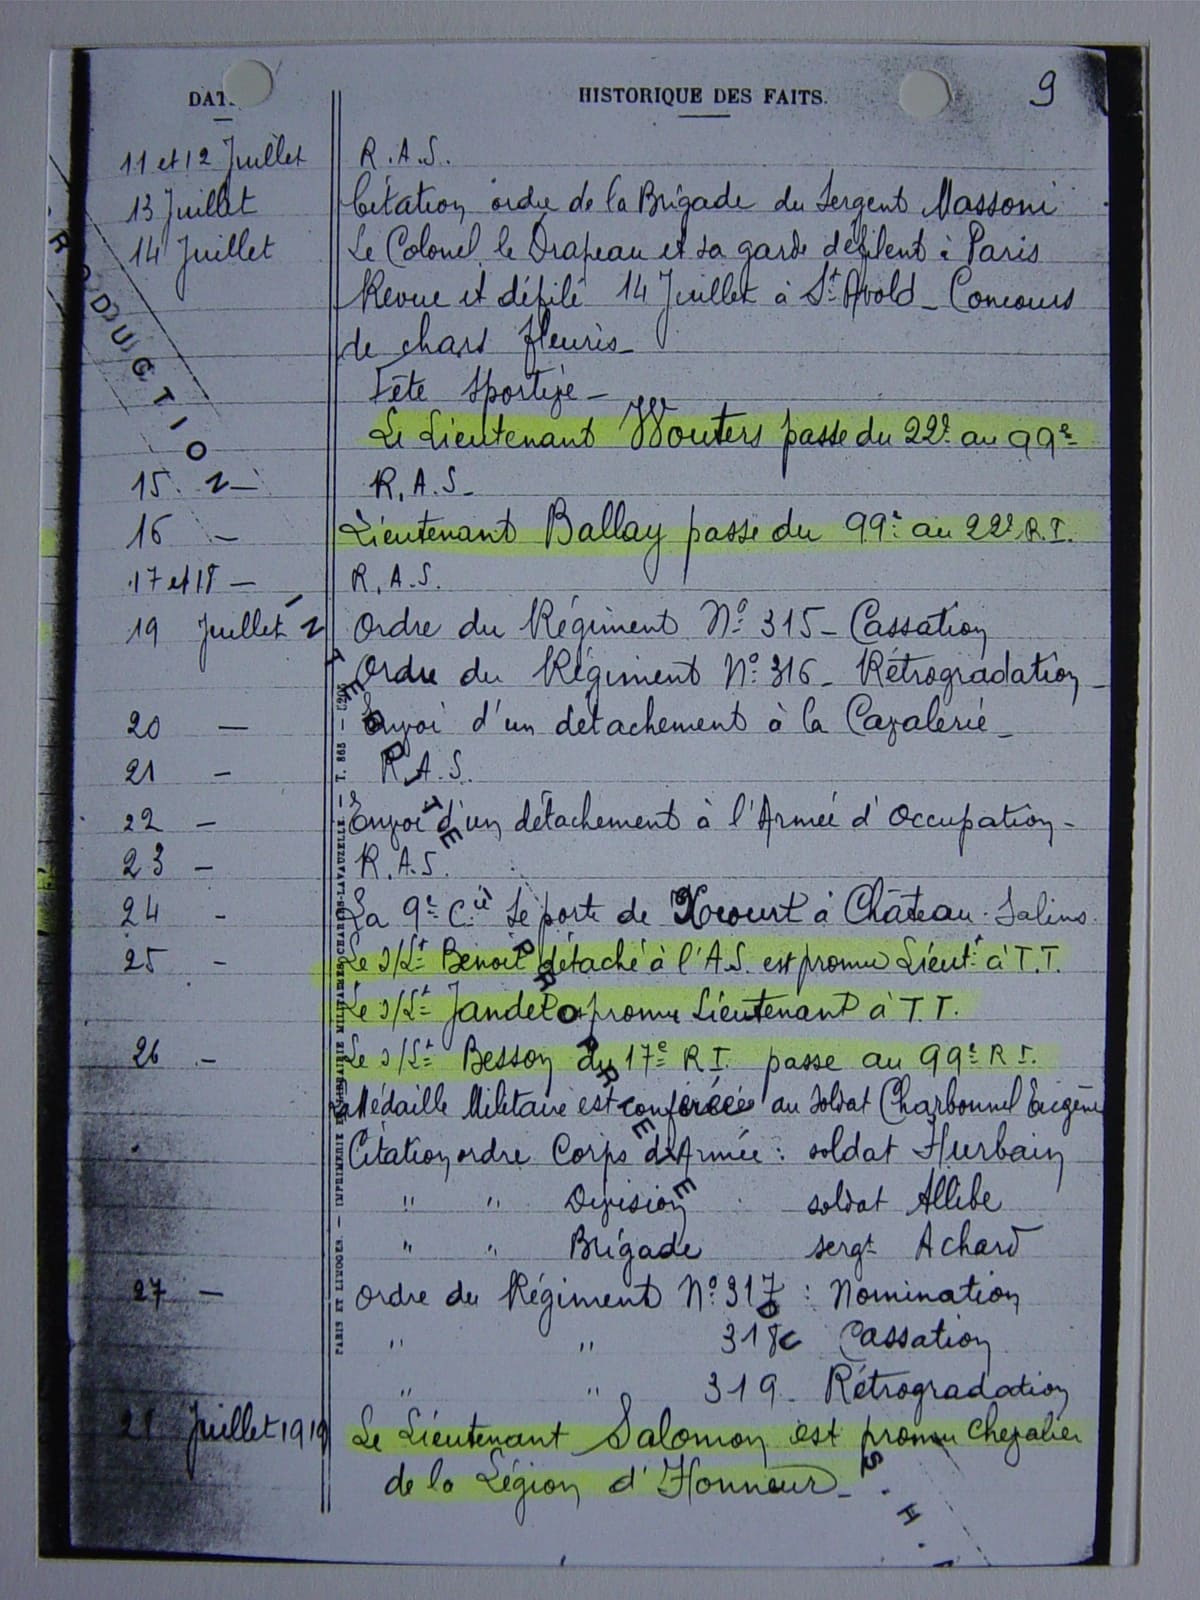 DAT
HISTORIQUE DES FAITS.
9
11 et 12 Juillet R.A.S.
13 Juillet Citation ordre de la Brigade du Sergent Massoni
14 Juillet Le Colonel, le Drapeau et sa garde défilent à Paris
Revue et défilé 14 Juillet à St Avold - Concours
de chars fleuris -
Fête Sportive -
Le Lieutenant Wouters passe du 22e au 99e
15 - R.A.S.
16 - Lieutenant Ballay passe du 99e au 22e R.I.
17 et 18 - R.A.S.
19 Juillet Ordre du Régiment No 315 - Cassation
Ordre du Régiment No 316 - Rétrogradation -
20 - Envoi d'un détachement à la Cavalerie -
21 - R.A.S.
22 - Envoi d'un détachement à l'Armée d'Occupation -
23 - R.A.S.
24 - La 9e Cie se porte de Xocourt à Château-Salins.
25 - Le s/Lt Benoit détaché à l'A.S. est promu Lieutt à T.T.
Le s/Lt Jandet promu Lieutenant à T.T.
26 - Le s/Lt Besson du 17e R.I. passe au 99e R.I.
La Médaille Militaire est conférée au soldat Charbonnel Eugène
Citation ordre Corps d'Armée : soldat Hurbain
" " Division soldat Allibe
" " Brigade sergt Achard
27 - Ordre du Régiment No 317 : Nomination
" " 318 Cassation
" " 319 - Rétrogradation
Juillet 1919 Le Lieutenant Salomon est promu Chevalier
de la Légion d'Honneur -
PARIS ET LIMOGES. — IMPRIMERIE LIBRAIRIE MILITAIRE CHARLES-LAVAUZELLE — T. 865 —
RODUCTION INTERDITE
PROPRIETE DU S.H.